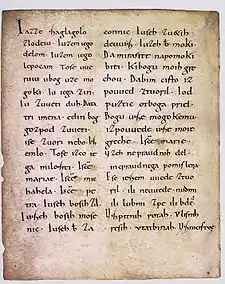 Iazze zaglagolo
Zlodeiu. Iuzem iego
delom. Iuzem iego
lepocam. Tose uue
ruiu ubog uze mo
goki. Iu iega Zin.
Iu Zuueti duh. Da tá
tri imena. edin bog
gozpod Zuueti.
ise zuori nebo. Iz
emlo. Tose izco ie
ga milosti. Isce
mariae. Isce mi
hahela. Isce pe
tra. Iuseh bosih zil.
Iuseh bosih mose
nic. Iuseh b. Za
connic. Iuseh Zuetih
deuuiz. Iuzeh b. moki.
Da mi rasite napomoki
biti. Kibogu moih gre
chou. Dabim cisto iz
pouued ztuoril. Iod
puztic otboga priel.
Bogu uze mogokemu
izpouuede uze moie
greche. Isce marie.
Uzeh nepraudnih del.
inepraudnega pomislela.
Ese iezem uuede ztuo
ril. ili neuuede. nudmi
ili lubmi zpe. ili bde.
Uzpitnih rotah. Ulisnih
resih. Utatbinah. Uznicistue